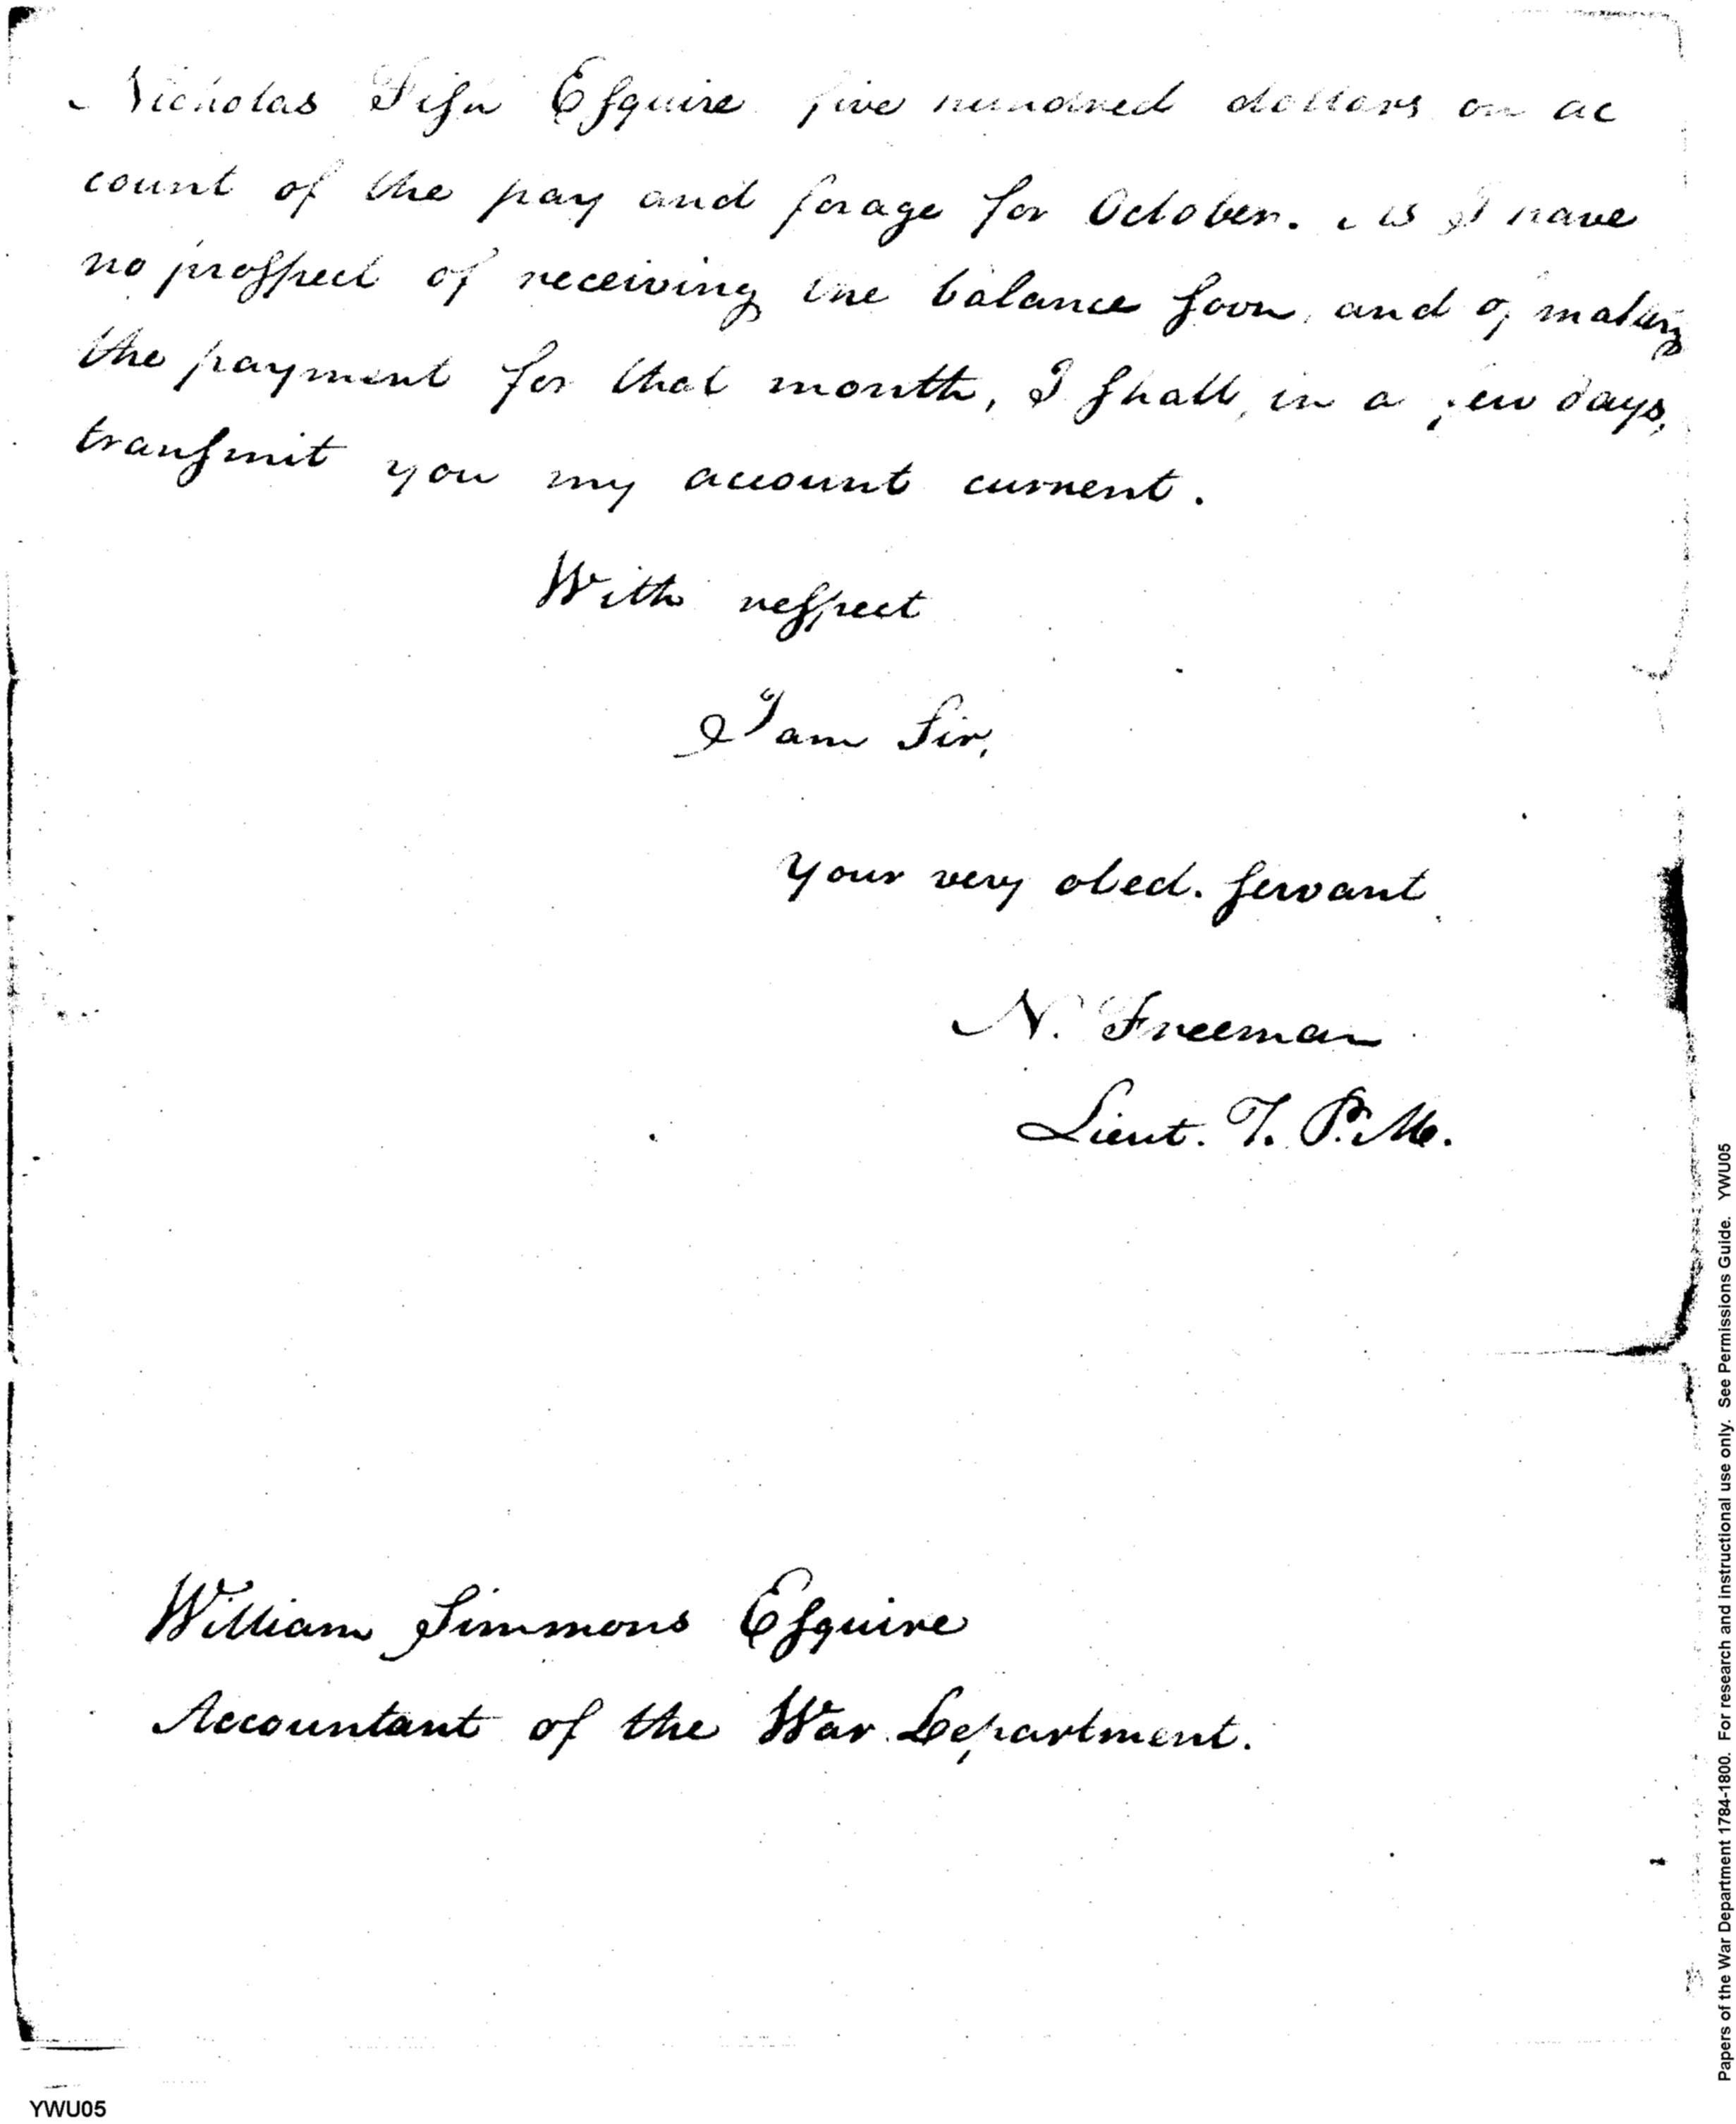 Nicholas Fish Esquire five hundred dollars on ac
count of the pay and forage for October. As I have
no prospect of receiving the balance soon, and of making
the payment for that month, I shall, in a few days,
transmit you my account current.
With respect
I am Sir,
Your very obed. servant
N. Freeman
Lieut. T. P. M.
William Simmons Esquire
Accountant of the War Department.
Papers of the War Department 1784-1800. For research and instructional use only. See Permissions Guide. YWU05
YWU05